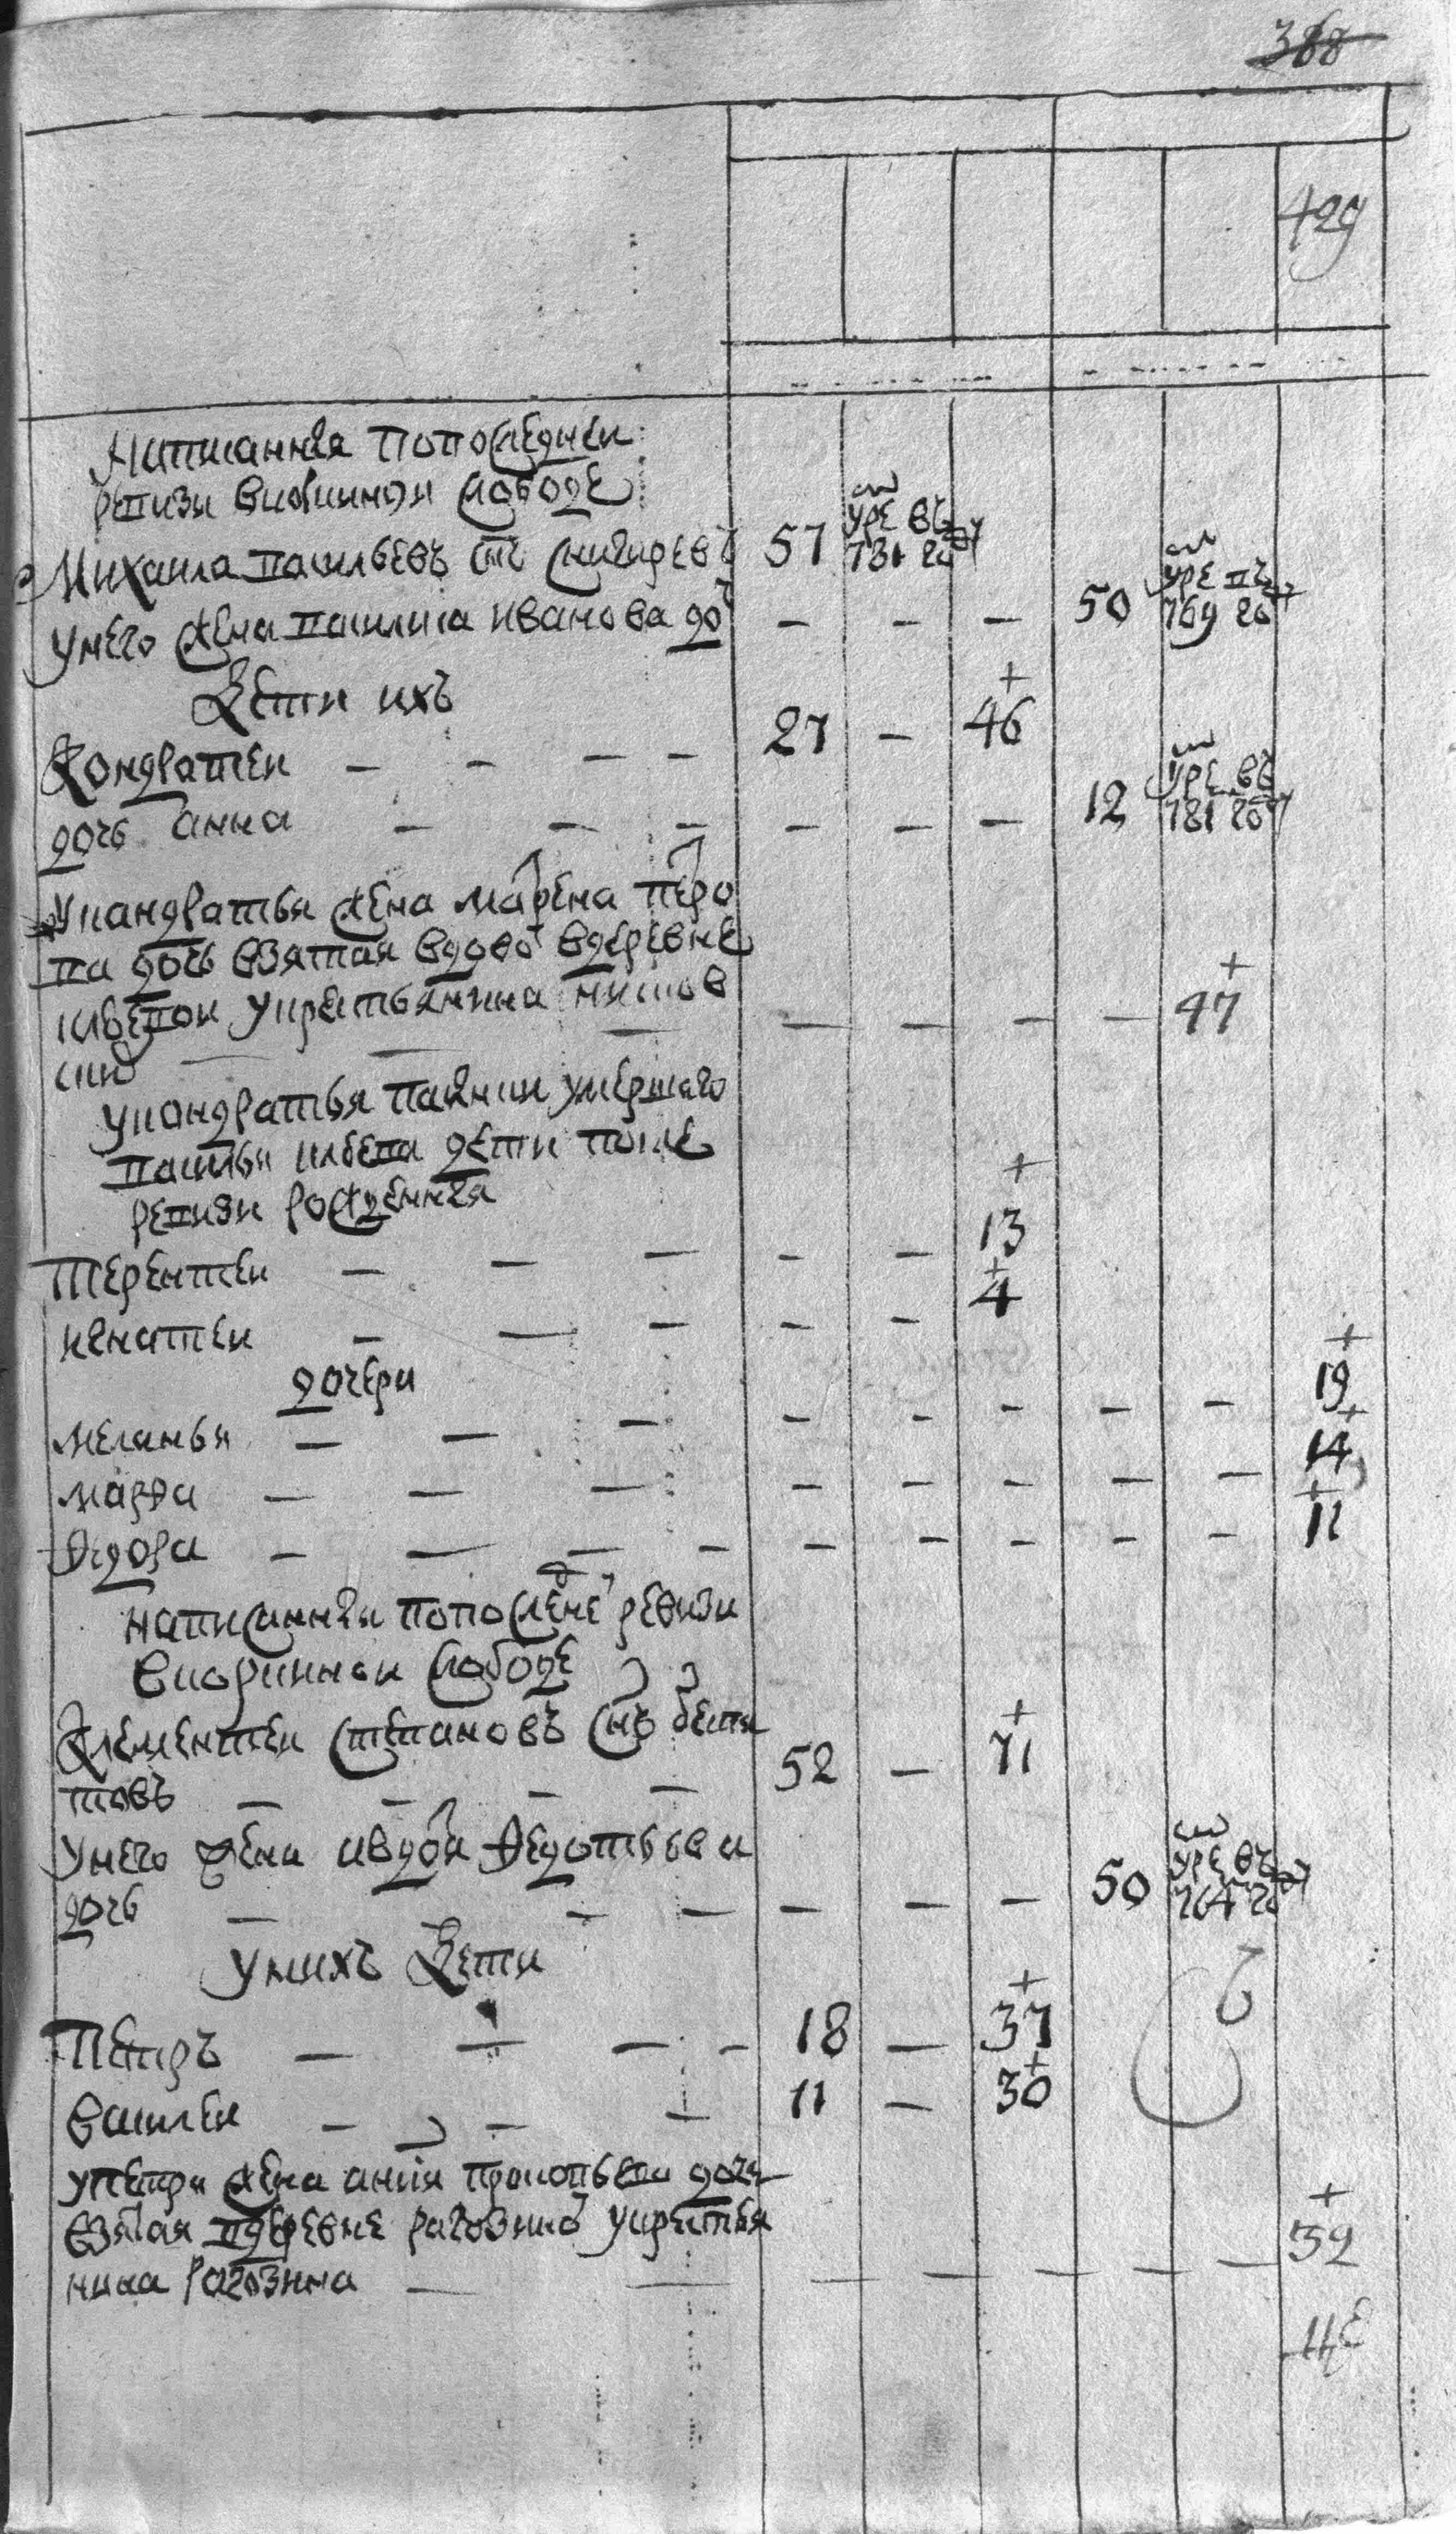 388
429
Написанныя попоследнеи
ревизи в слободе
Михаила васильевъ снъ снигиревъ 57 умре въ 781 го
Унего жена василиса иванова дочь — — — 50 умре въ 769 го
Дети ихъ
Кондратеи — — — — 27 — 46
дочь анна — — — — — — 12 умре въ 781 го
Укандратья жена марена петро
ва дочь взятая вдово вдеревне
укрестьянина — — — — — — 47
Укондратья умершаго
василья дети после
ревизи рожденныя
Терентеи — — — — — 13
игнатеи — — — — — 4
дочери
меланья — — — — — — — — 19
марфа — — — — — — — — 14
Федора — — — — — — — — — 11
написанныя попоследне ревизи
в слободе
Клементеи степановъ снъ
товъ — — — — 52 — 71
Унего жена авдотя Федотьева
дочь — — — — — — — 50 умре въ 764 го
Унихъ Дети
Петръ — — — — 18 — 37
василеи — — — 11 — 30
упетра жена анна прокопьева дочь
взятая вдеревне рагозино укрестья
нина рагозина — — — — — — — 32